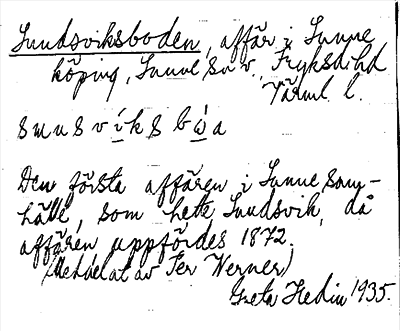 Sundsviksboden, affär i Sunne
köping, Sunne sn v. Fryksd. hd
Värml. l.
s u n s v í k s b ù a
Den första affären i Sunne sam-
hälle, som hette Sundsvik, då
affären uppfördes 1872.
(Meddelat av Per Werner)
Greta Hedin 1935.